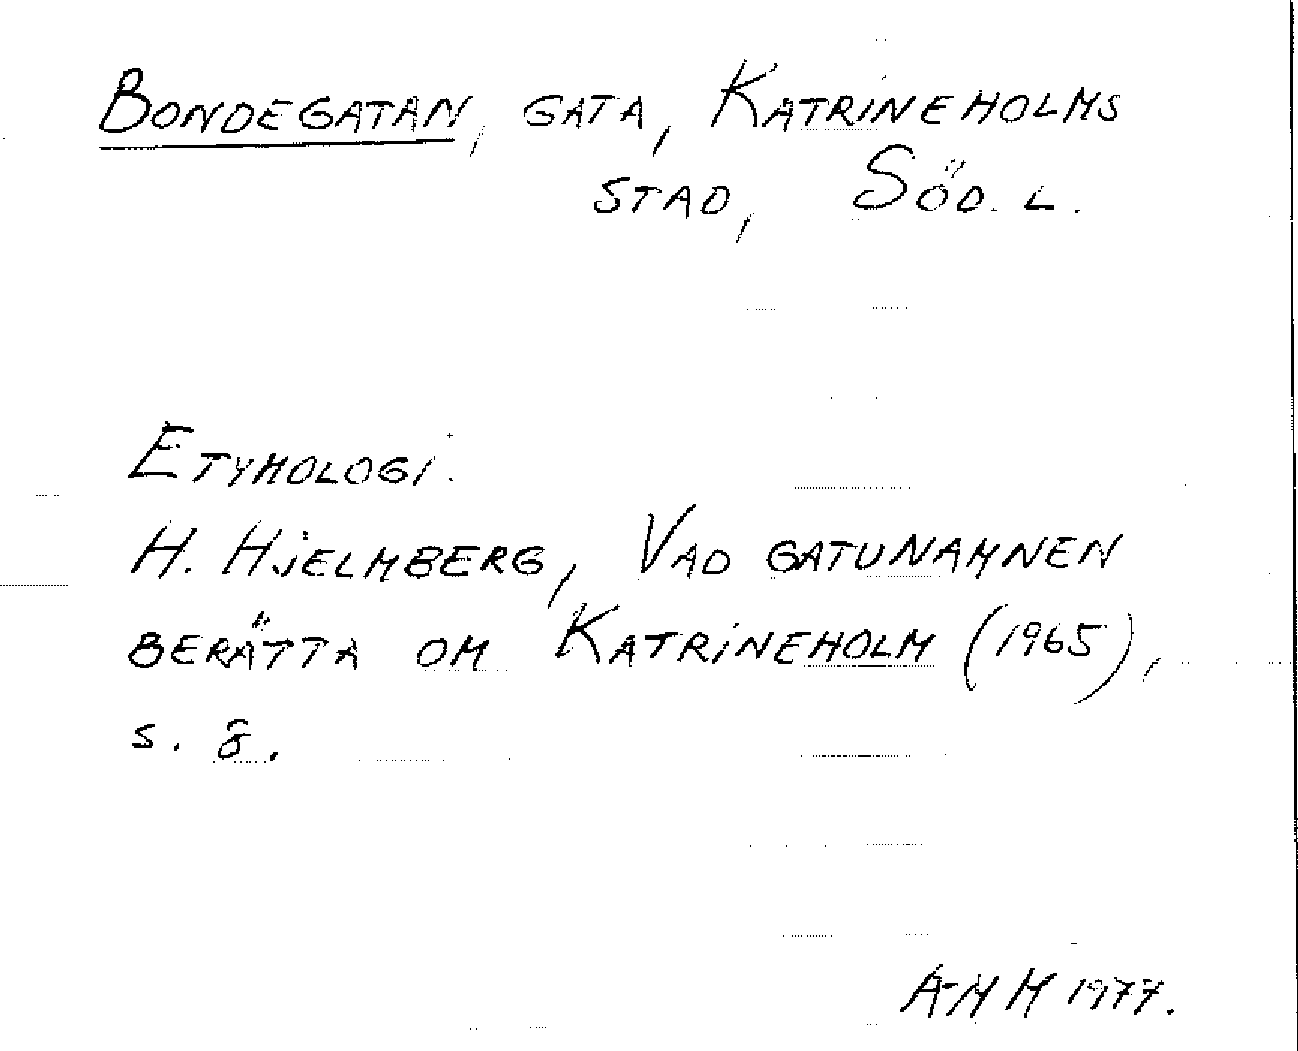 Bondegatan, gata, Katrineholms
stad, Söd. L.
Etymologi.
H. Hjelmberg, Vad gatunamnen
berätta om Katrineholm (1965),
s. 8.
A-M H 1977.